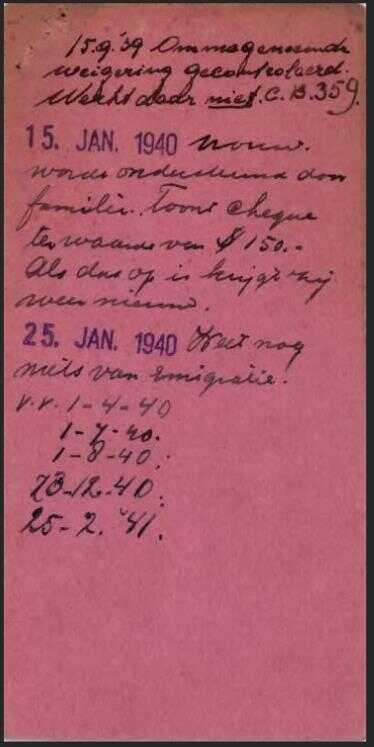 15.9.'39 Ommegenoemde
weigering gecontroleerd.
Werkt daar niet. C.B. 359.
15. JAN. 1940 mouw.
wordt ondersteund door
familie. Toont cheque
ter waarde van $ 150.-
Als das op is krijgt zij
weer nieuwe.
25. JAN. 1940 Weet nog
niets van emigratie.
v.v. 1-4-40
1-7-40.
1-8-40.
23-12-40.
25-2.'41.